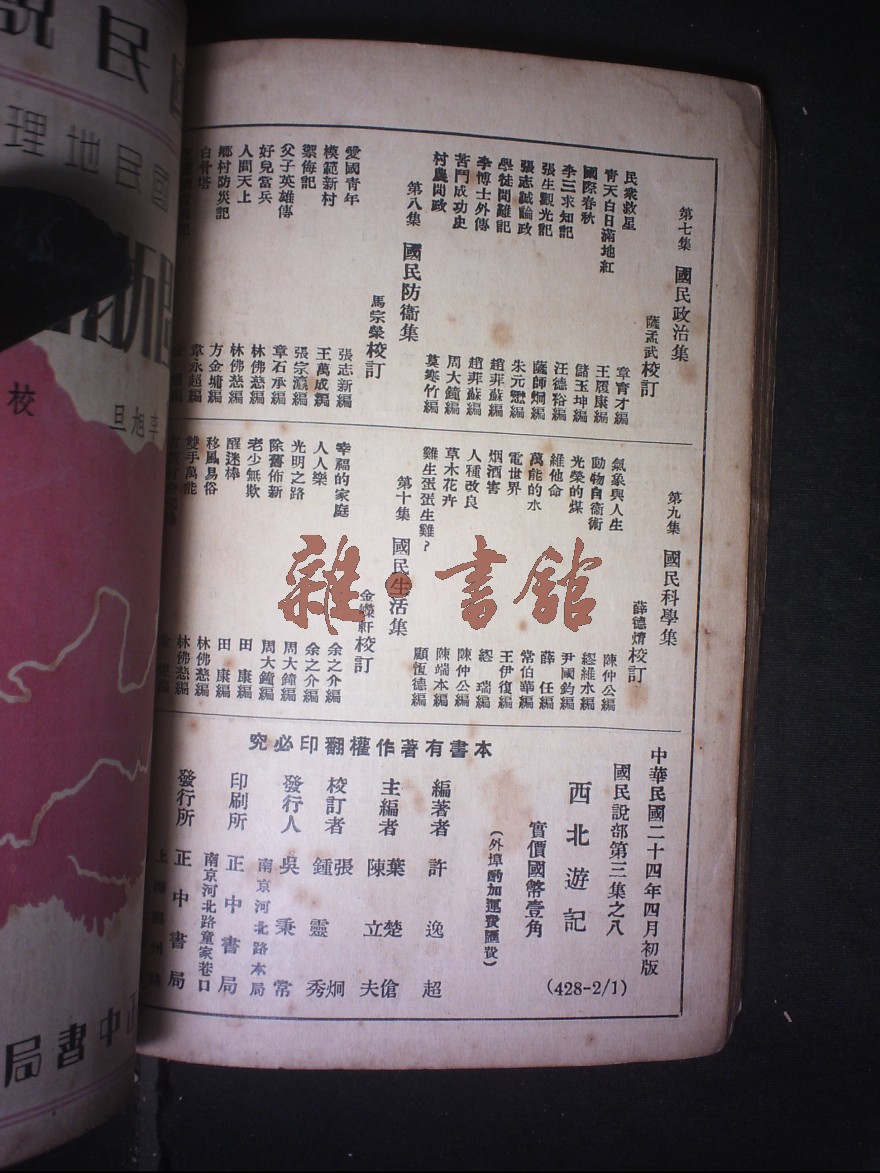 第七集 國民政治集
薩孟武校訂
民衆救星 章育才編
青天白日滿地紅 王履康編
國際春秋 儲玉坤編
李三求知記 汪德裕編
張生觀光記 薩師炯編
張志誠論政 朱元懋編
學徒問難記 趙菲蘇編
李博士外傳 趙菲蘇編
苦鬥成功史 周大鐘編
村農問政 莫寒竹編
第八集 國民防衞集
馬宗榮校訂
愛國青年 張志新編
模範新村 王萬成編
禦侮記 張宗瀛編
父子英雄傳 章石承編
好兒當兵 林佛慈編
人間天上 林佛慈編
鄉村防災記 方金墉編
白骨塔 韋永超編
第九集 國民科學集
薛德焴校訂
氣象與人生 陳仲公編
動物自衞術 繆維水編
光榮的煤 尹國鈞編
維他命 薛任編
萬能的水 常伯華編
電世界 王伊復編
烟酒害 繆瑞編
人種改良 陳仲公編
草木花卉 陳端本編
雞生蛋蛋生雞？ 顧恆德編
第十集 國民生活集
金嶸軒校訂
幸福的家庭 余之介編
人人樂 余之介編
光明之路 周大鐘編
除舊佈新 周大鐘編
老少無欺 田康編
醒迷棒 田康編
移風易俗 林佛慈編
雙手萬能 林佛慈編
本書有著作權翻印必究
中華民國二十四年四月初版
國民說部第三集之八
西北遊記
實價國幣壹角
(外埠酌加運費匯費)
(428-2/1)
編著者 許逸超
主編者 葉楚傖 陳立夫
校訂者 張炯 鍾靈秀
發行人 吳秉常
南京河北路本局
印刷所 正中書局
南京河北路童家巷口
發行所 正中書局
國民說
國民地理
李旭旦
校
正中書局
雜·書館